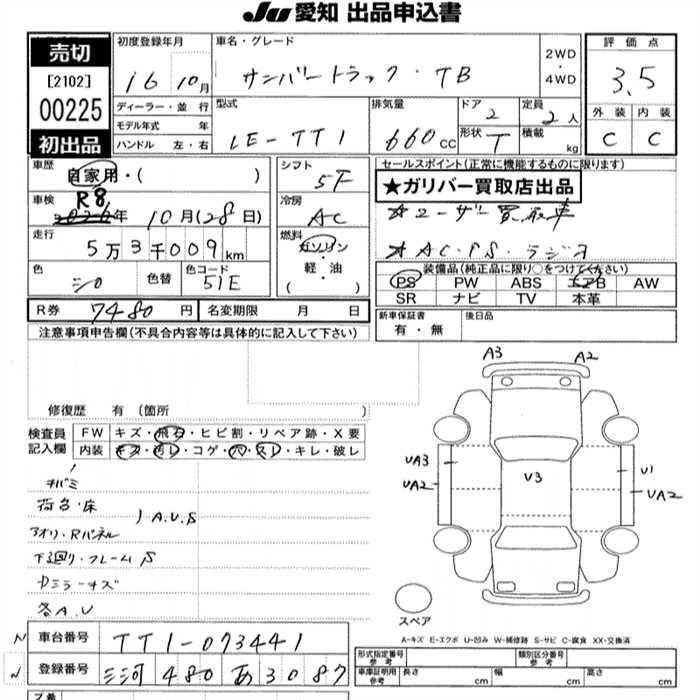 JU 愛知 出品申込書
売切
[2102]
00225
初出品
初度登録年月
16 10月
車名・グレード
サンバートラック・TB
2WD
・
4WD
評価点
3.5
外装 内装
C C
ディーラー・並行
モデル年式 年
ハンドル 左・右
型式
LE-TT1
排気量
660cc
ドア 2
形状 T
定員 2人
積載 kg
車歴 自家用・( )
車検 R8 2026年 10月(28日)
走行 5万3千009km
色 シロ 色替 色コード 51E
シフト 5F
冷房 AC
燃料 ガソリン
軽・油
( )
セールスポイント(正常に機能するものに限ります)
★ガリバー買取店出品
★ユーザー買取車
★AC・PS・ラジオ
装備品(純正品に限り○をつけてください)
PS PW ABS エアB AW
SR ナビ TV 本革
R券 7480円 名変期限 月 日
新車保証書 有・無 後日品
注意事項申告欄(不具合内容等は具体的に記入して下さい)
修復歴 有 (箇所 )
検査員記入欄
FW キズ・飛石・ヒビ割・リペア跡・X要
内装 キズ・汚レ・コゲ・穴・スレ・キレ・破レ
荷台・床
アオリ・Rパネル
)A.U.S
下廻り・フレームS
カミラーキズ
各A.U
A3 A2
UA3
UA2
U3
U1
UA2
スペア
A-キズ E-エクボ U-凹み W-補修跡 S-サビ C-腐食 XX-交換済
N 車台番号 TT1-073441
N 登録番号 三河 480 あ 3087
形式指定番号 参考
類別区分番号 参考
車庫証明用 参考 長さ cm 幅 cm 高さ cm